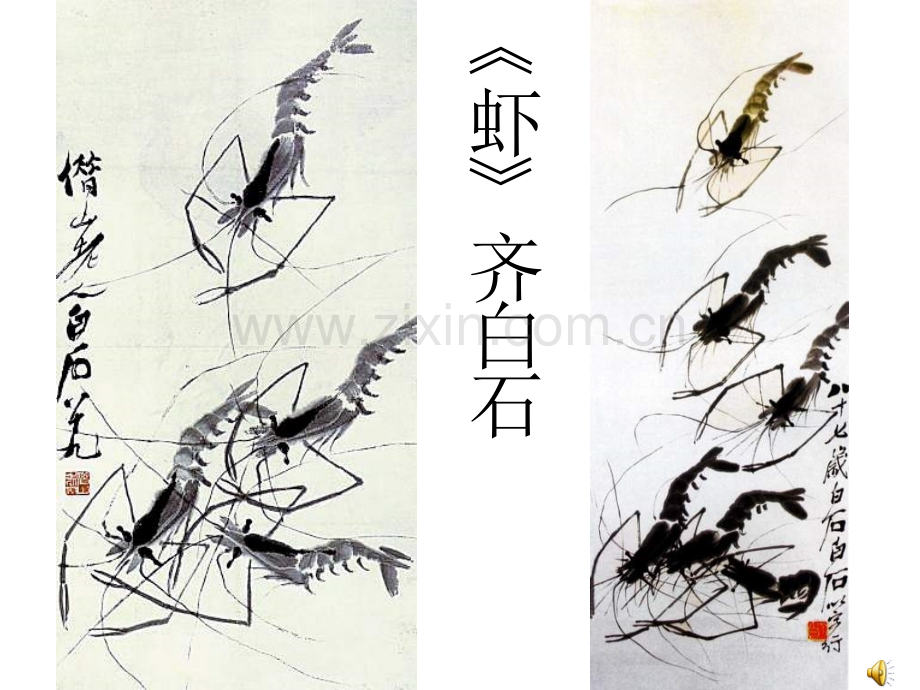 借山老人白石
《虾》 齐白石
八十七歲白石白石以字行
www.zixin.com.cn